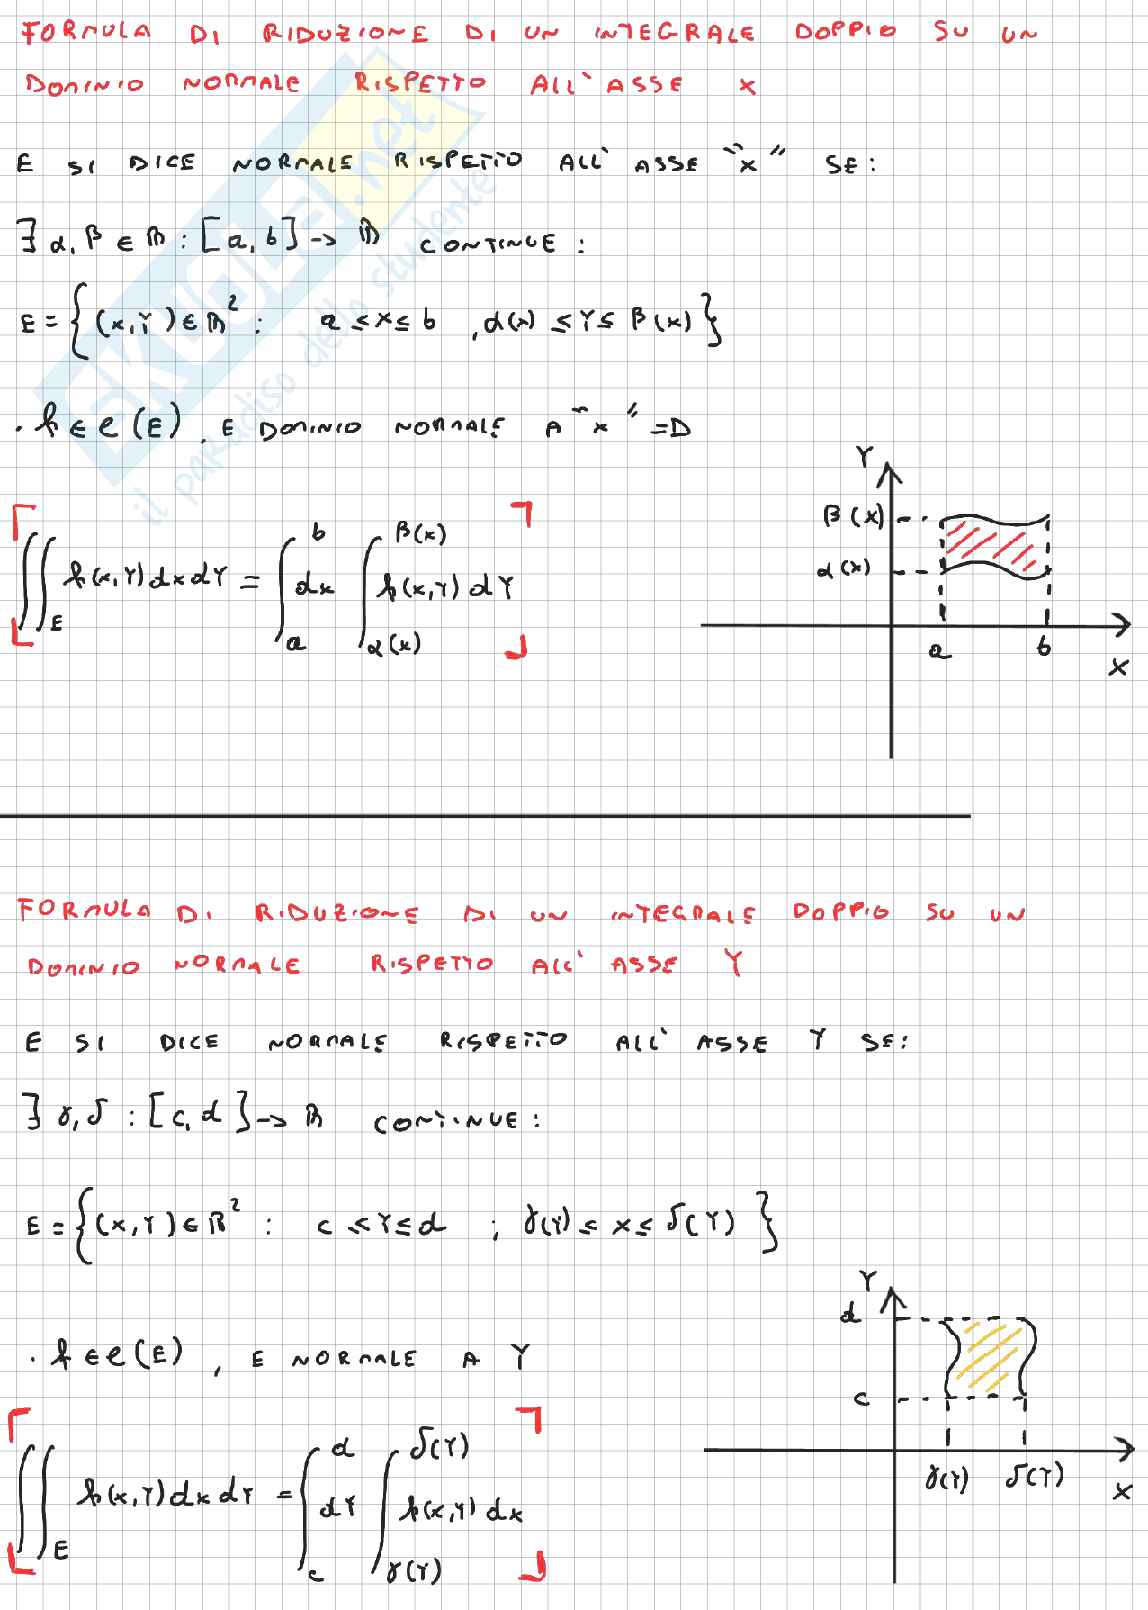 FORMULA DI RIDUZIONE DI UN INTEGRALE DOPPIO SU UN
DOMINIO NORMALE RISPETTO ALL'ASSE X
E SI DICE NORMALE RISPETTO ALL'ASSE "X" SE:
∃ α, β ∈ ℝ : [a, b] → ℝ CONTINUE :
E = { (x, y) ∈ ℝ² : a ≤ x ≤ b , α(x) ≤ y ≤ β(x) }
. f ∈ C(E), E DOMINIO NORMALE A "x" = D
∬_E f(x,y) dx dy = ∫_a^b dx ∫_α(x)^β(x) f(x,y) dy
Y
β(x)
α(x)
a b
X
FORMULA DI RIDUZIONE DI UN INTEGRALE DOPPIO SU UN
DOMINIO NORMALE RISPETTO ALL'ASSE Y
E SI DICE NORMALE RISPETTO ALL'ASSE Y SE:
∃ γ, δ : [c, d] → ℝ CONTINUE :
E = { (x, y) ∈ ℝ² : c ≤ y ≤ d ; γ(y) ≤ x ≤ δ(y) }
. f ∈ C(E), E NORMALE A Y
∬_E f(x,y) dx dy = ∫_c^d dy ∫_γ(y)^δ(y) f(x,y) dx
Y
d
c
γ(y) δ(y)
X
SKUOLA.net
il paradiso dello studente